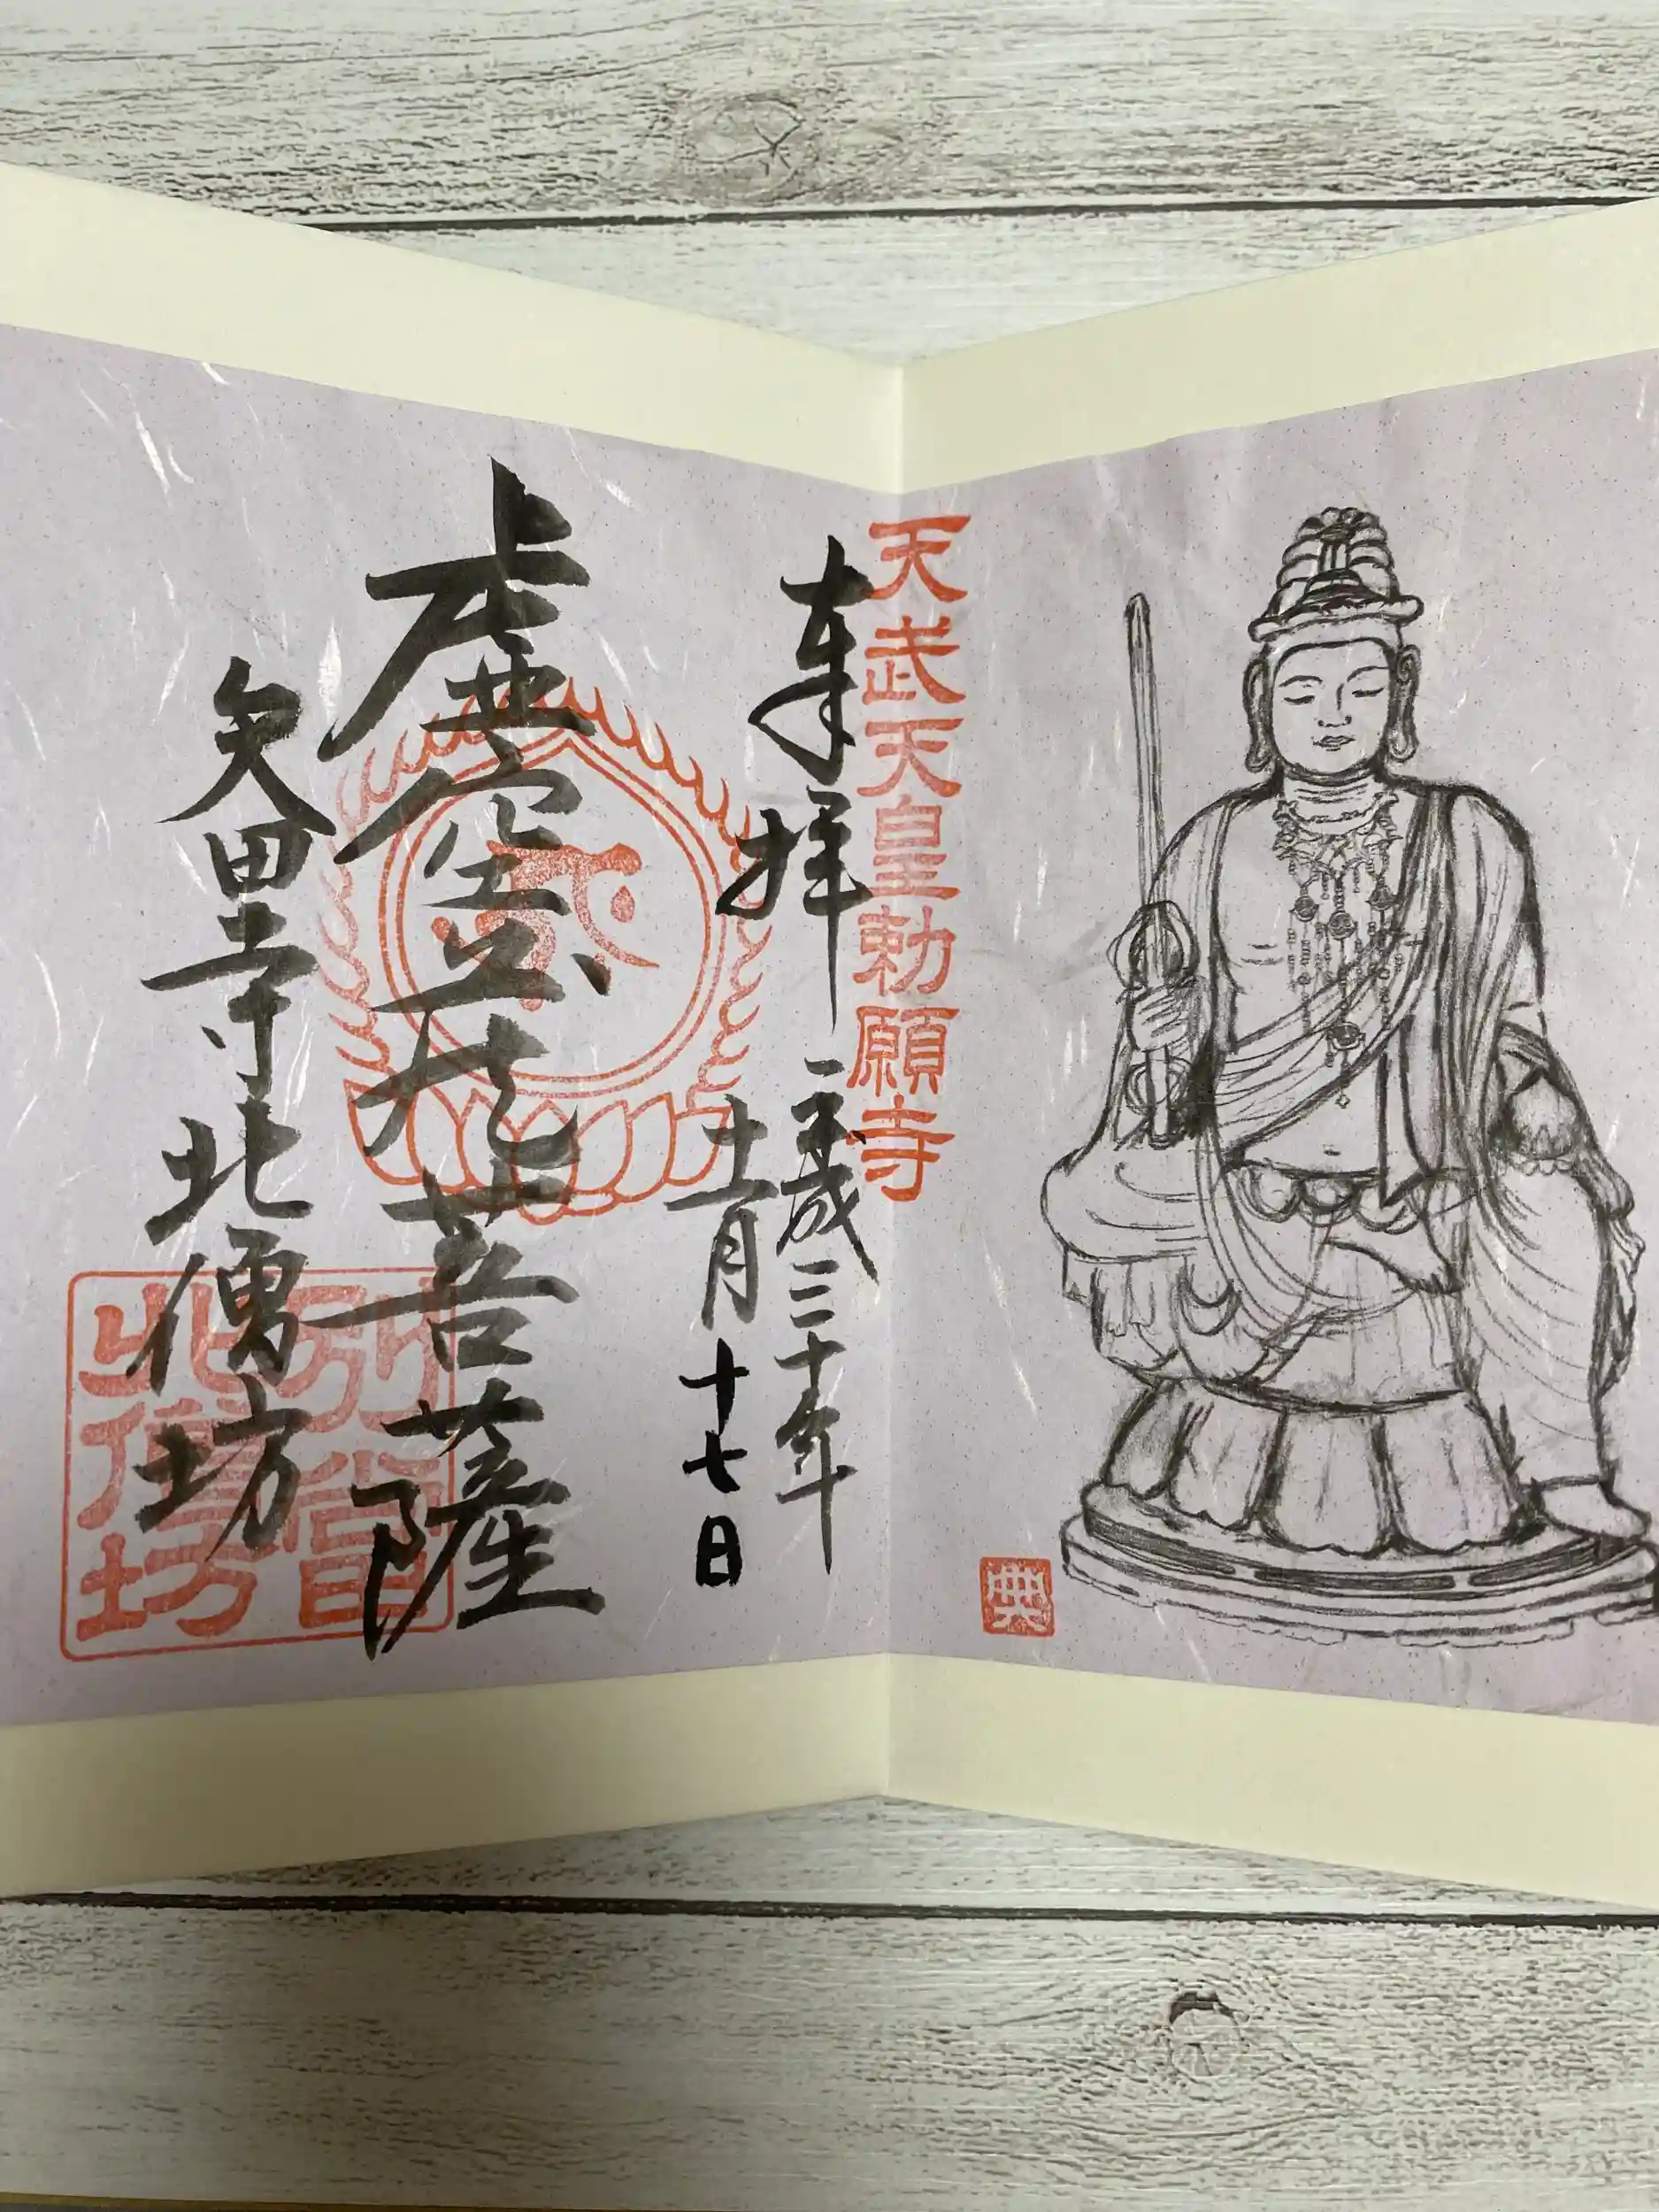 天武天皇勅願寺
奉拝
平成三十年
十一月十七日
虚空蔵菩薩
矢田寺北僧坊
別格
北僧坊
典